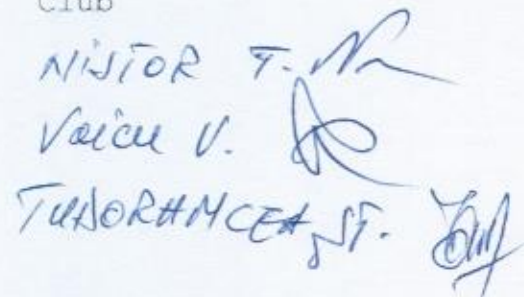 Club
NISTOR T.
Voicu V.
TUDORANCEA ST.